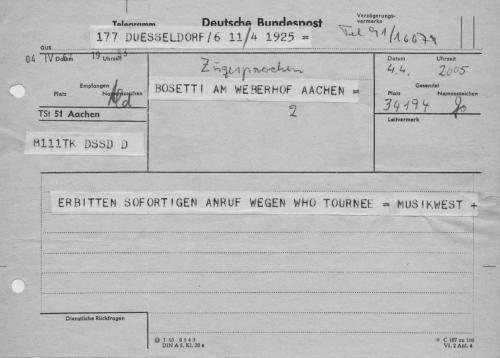 Telegramm Deutsche Bundespost Verzögerungs-
vermerke
177 DUESSELDORF/6 11/4 1925 =
Tel 91/16674
aus
04 IV 67 19 33
Datum Uhrzeit
Zugesprochen
Datum Uhrzeit
4.4. 2005
Empfangen
Platz Namenszeichen
Gesendet
Platz Namenszeichen
BOSETTI AM WEBERHOF AACHEN =
2
34194
TSt 51 Aachen
Leitvermerk
8111TK DSSD D
ERBITTEN SOFORTIGEN ANRUF WEGEN WHO TOURNEE = MUSIKWEST +
Dienstliche Rückfragen
DIN A 5, Kl. 28 a
C 187 zu 110
VI, 2 Anl. 4